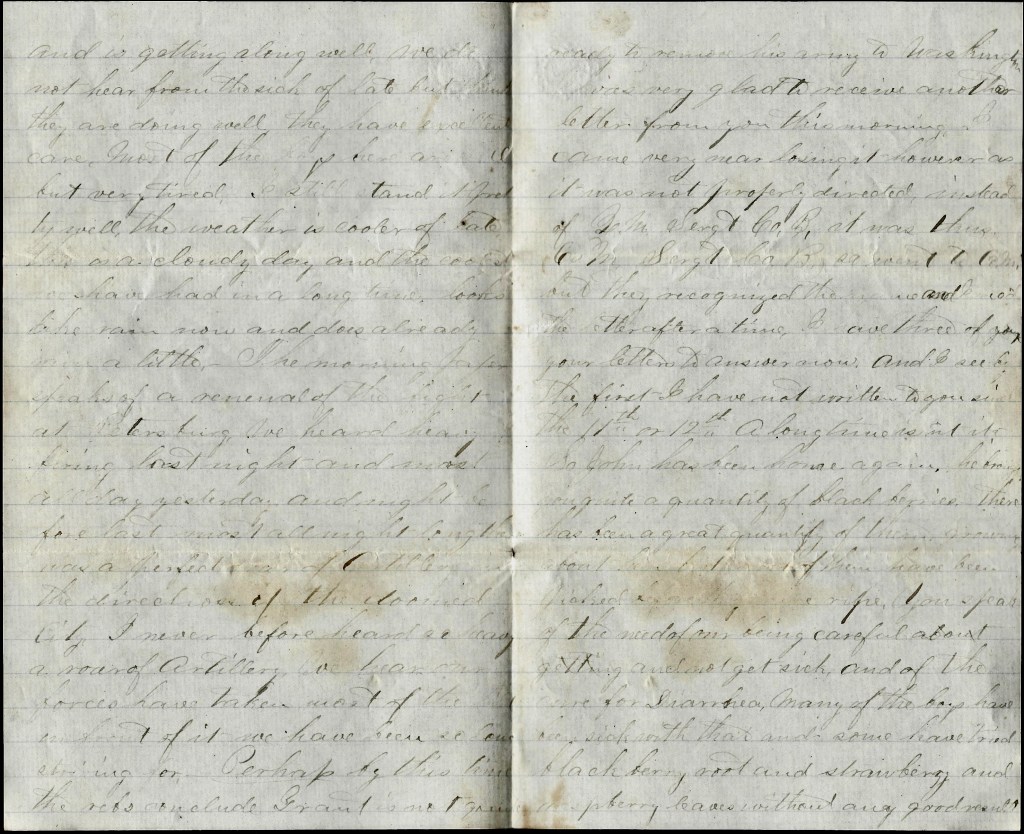 and is getting along well. We do
not hear from the sick of late but think
they are doing well. They have excellent
care. Most of the boys here are well
but very tired. I still stand it pret
ty well, the weather is cooler of late
this is a cloudy day and the coolest
we have had in a long time. looks
like rain now and does already
rain a little,- The morning paper
speaks of a renewal of the fight
at Petersburg. We heard heavy
firing last night and most
all day yesterday and night be
fore last most all night long there
was a perfect roar of Artillery in
the direction of the doomed
City I never before heard so heavy
a roar of Artillery. We hear our
forces have taken most of the
in front of it we have been so long
striving for. Perhaps by this time
the rebs conclude Grant is not going
ready to remove his army to Washington
I was very glad to receive another
letter from you this morning. I
came very near losing it however as
it was not properly directed, instead
of Sergt Co, B, it was thus
C M, Sergt Co B, so went to
but they recognized the name and I
the letter after a time, I have three of your
your letters to answer now. and I see by
the first I have not written to you since
the 11th or 12th A long time isnt it
So John has been home again. he brings
you quite a quantity of black beries. There
has been a great quantity of them grown
about here but most of them have been
picked before they were ripe, You speak
of the need of our being careful about
getting and not get sick, and of the
cure for Diarrhea, Many of the boys have
been sick with that and some have tried
black berry root and strawberry and
raspberry leaves without any good result